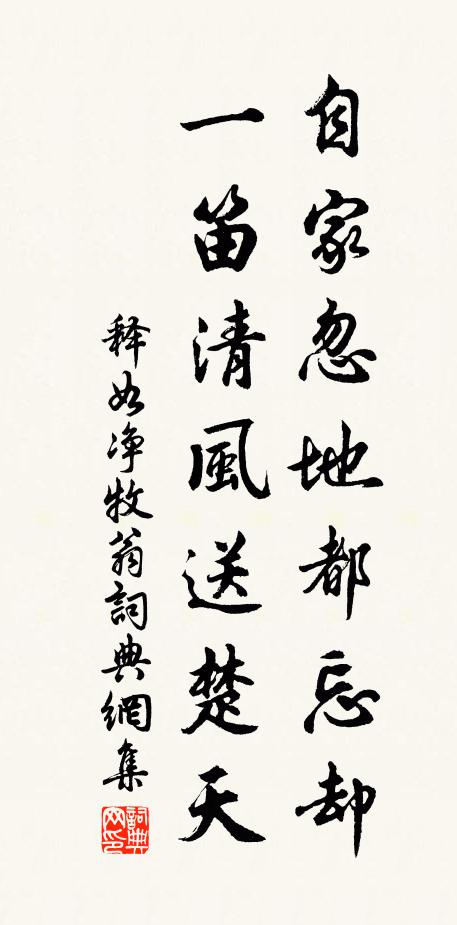 自家忽地都忘却
一笛清風送楚天
释如净牧翁詞典網集
詞典網印